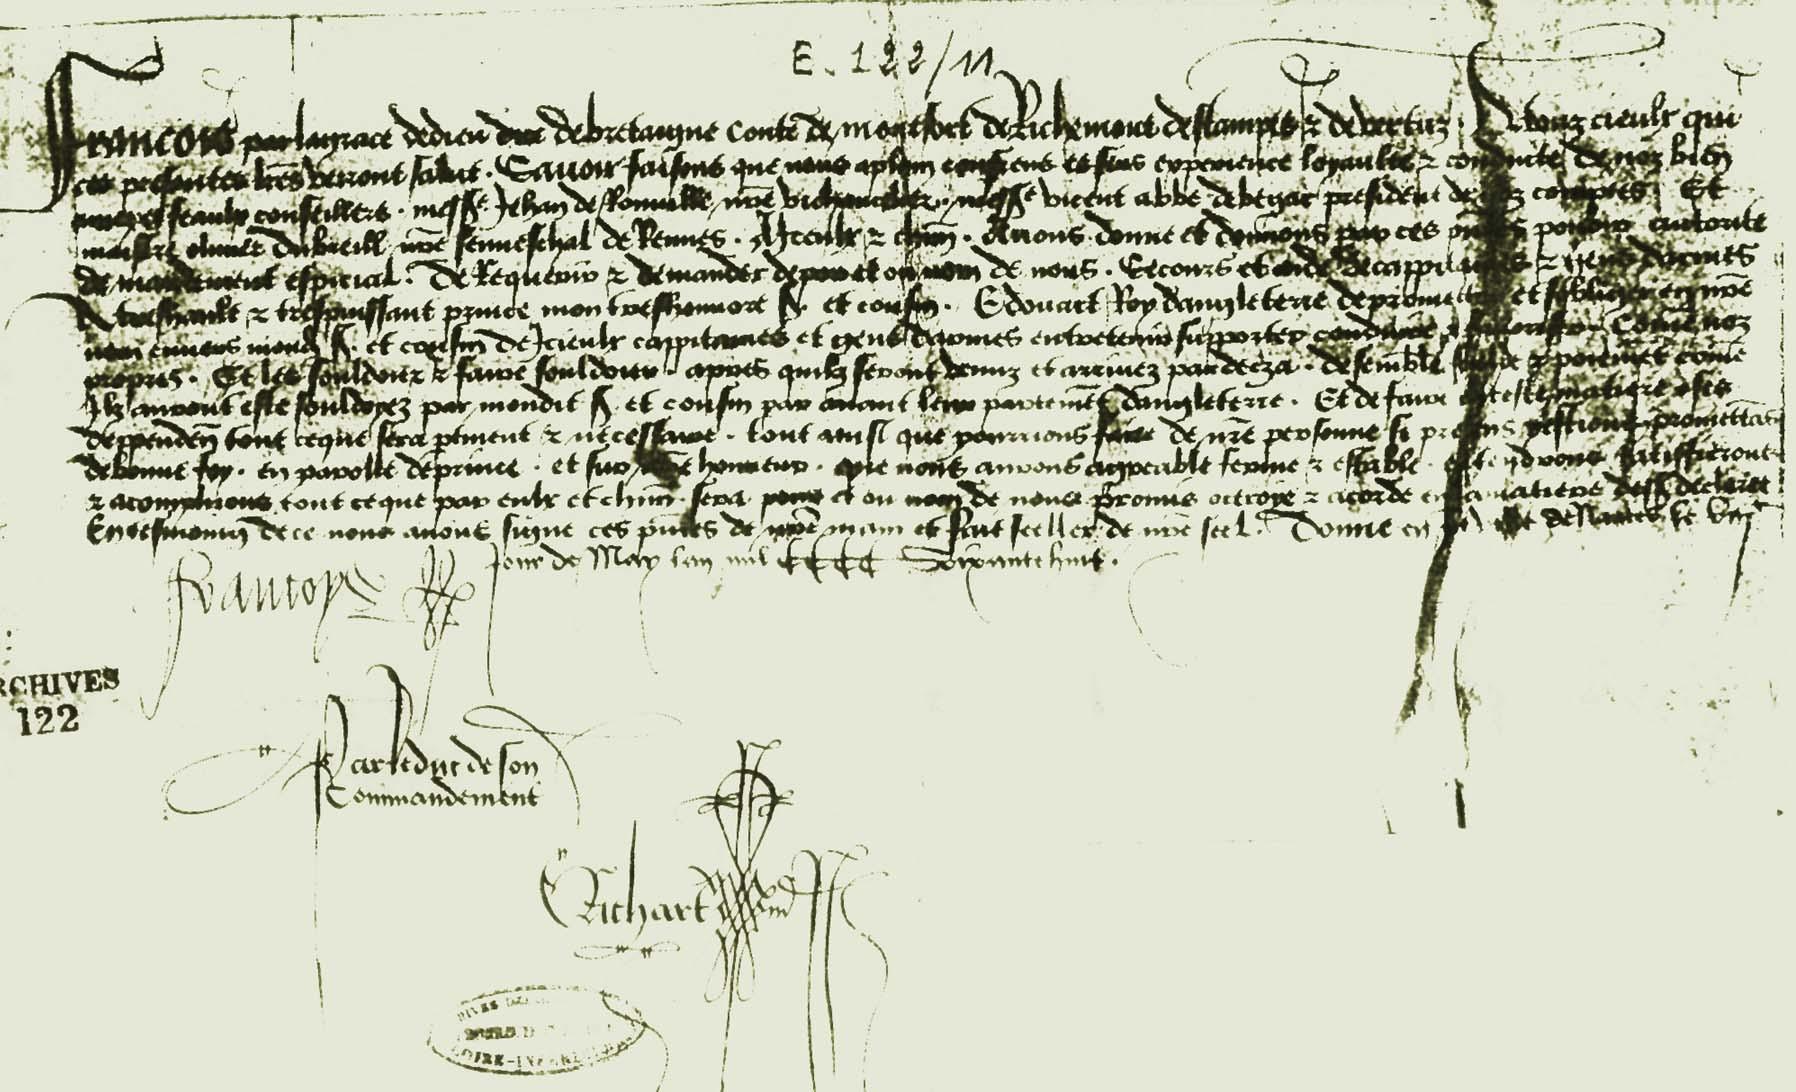 E. 122/11
Francois par la grace de dieu duc de bretaigne conte de montfort de Richemont destampes & de vertuz. A touz cieulx qui
ces presentes lrēs verront salut. Savoir faisons que nous a plain et sens experience loyaulte & conduicte de noz bien
amez feaulx conseillers. messe Jehan de Romille nrē vichancelier. messe vicent abbe de begar president de noz comptes. Et
maistre olivier du breill nrē senneschal de Rennes. A iceulx & chūn. Avons donne et donnons par ces pouoir auctorite
de mandement especial. De Requerir & demander de par et ou nom de nous. Secours et aide de cappitaines & gens darmes
A treshault & trespuissant prince mon treshonnore s. et cousin. Edouart Roy dangleterre de promectre et obliger en nrē
nom envers mond s. et cousin de Icieulx cappitaines et gens darmes entretenir supporter conduire & favoriser. Comē noz
propres. Et les souldoier & faire souldoier. apres quilz seront venuz et arrivez par decza. de semble & poiemēt comē
Ilz auront este souldoyez par mondit s. et cousin par avant leur partemēt dangleterre. Et de faire en ceste matiere
deppendēn tout ce que sera ptinent & necessaire. tout ainsi que pourrions faire de nrē personne si presens y estions. promettās
de bonne foy. en parolle de prince. et sur nrē honneur. que nous aurons aggreable ferme & estable.
& acomplirons tout ce que par eulx et chūn sera pour et ou nom de nous promis octroye & acorde en la matiere dess declaree
En tesmoing de ce nous avons signe ces pntes de nrē main et fait seeller de nrē seel. Donne en de nantes le
Jour de May lan mil CCCC Soixante huit.
Francoys
ARCHIVES
122
Par le duc de son
Commandement
Richart
LOIRE-INFERIEURE